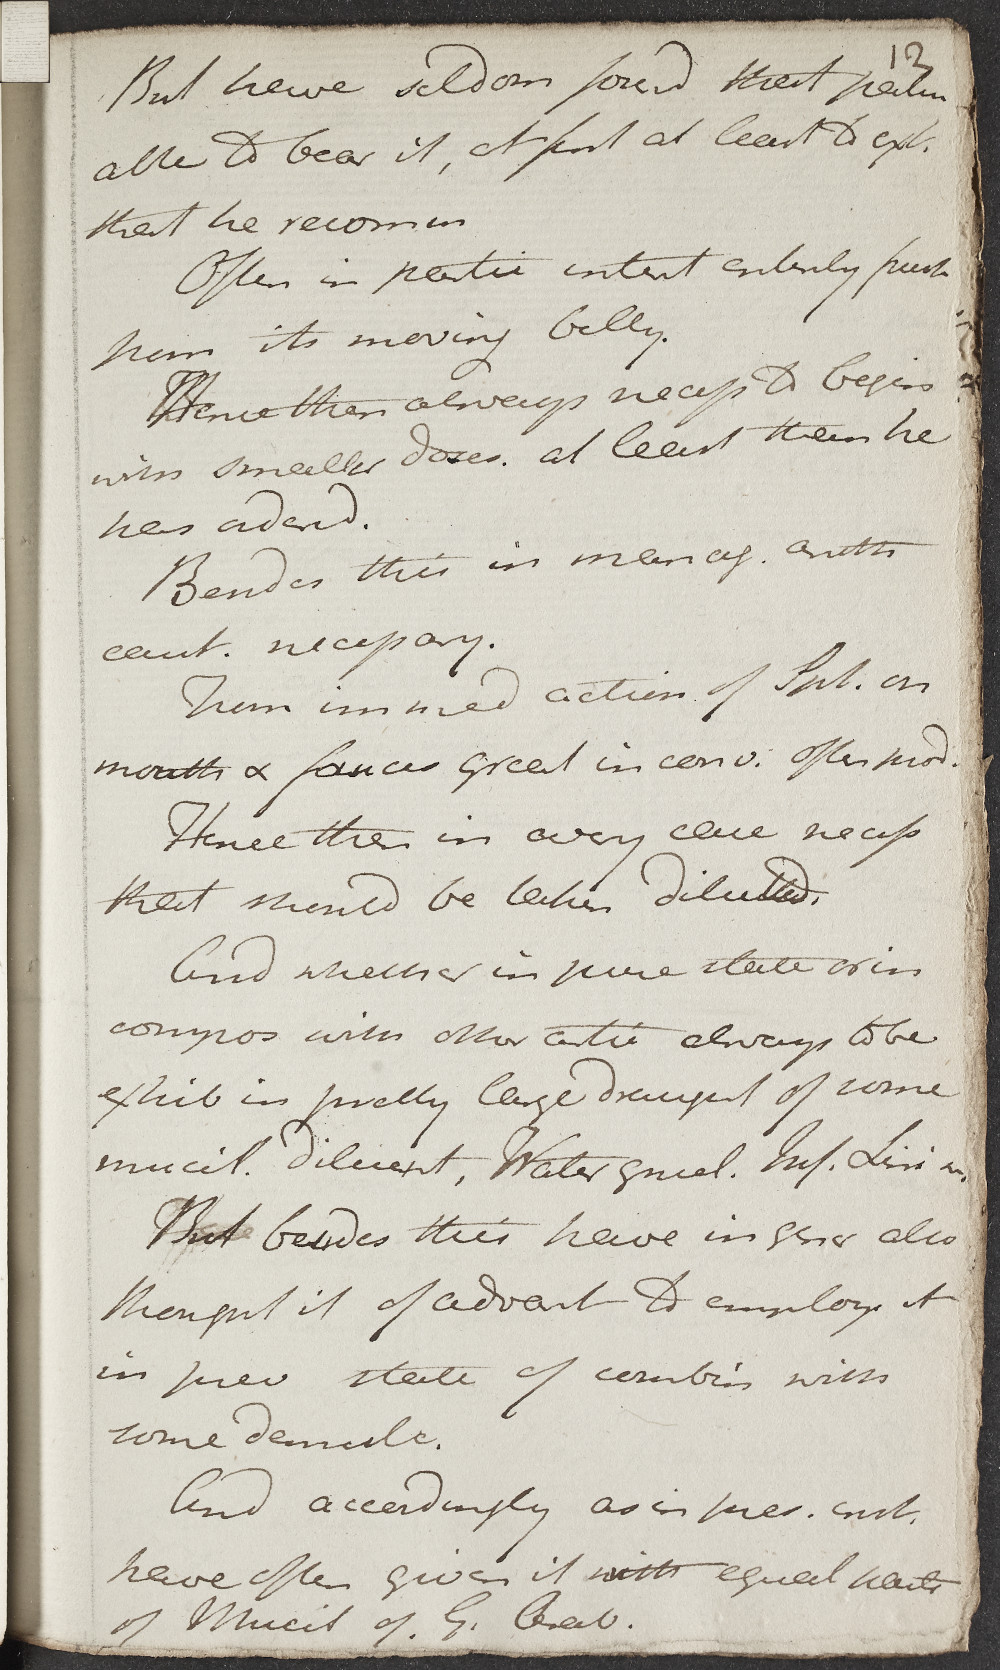 12
But have seldom found that patien
able to bear it, at first at least to ext.
that he recomm
Often in partic intent entirely prev
from its moving belly.
Hence then always necessy to begin
with smaller doses. at least than he
has advised.
Besides this in manag. anoth
caut. necessary.
From immed action of Spt. on
mouth & fauces great inconv. often prod.
Hence then in every case necess
that should be taken diluted.
And whether in pure state or in
compos with other artic always to be
exhib in pretty large draught of some
mucil. diluent, Water gruel. Inf. Lini
But besides this have in gener also
thought it of advant to employ it
in prev state of combin with
some demulc.
And accordingly as in pres. inst.
have often given it with equal parts
of Mucil of G. Arab.